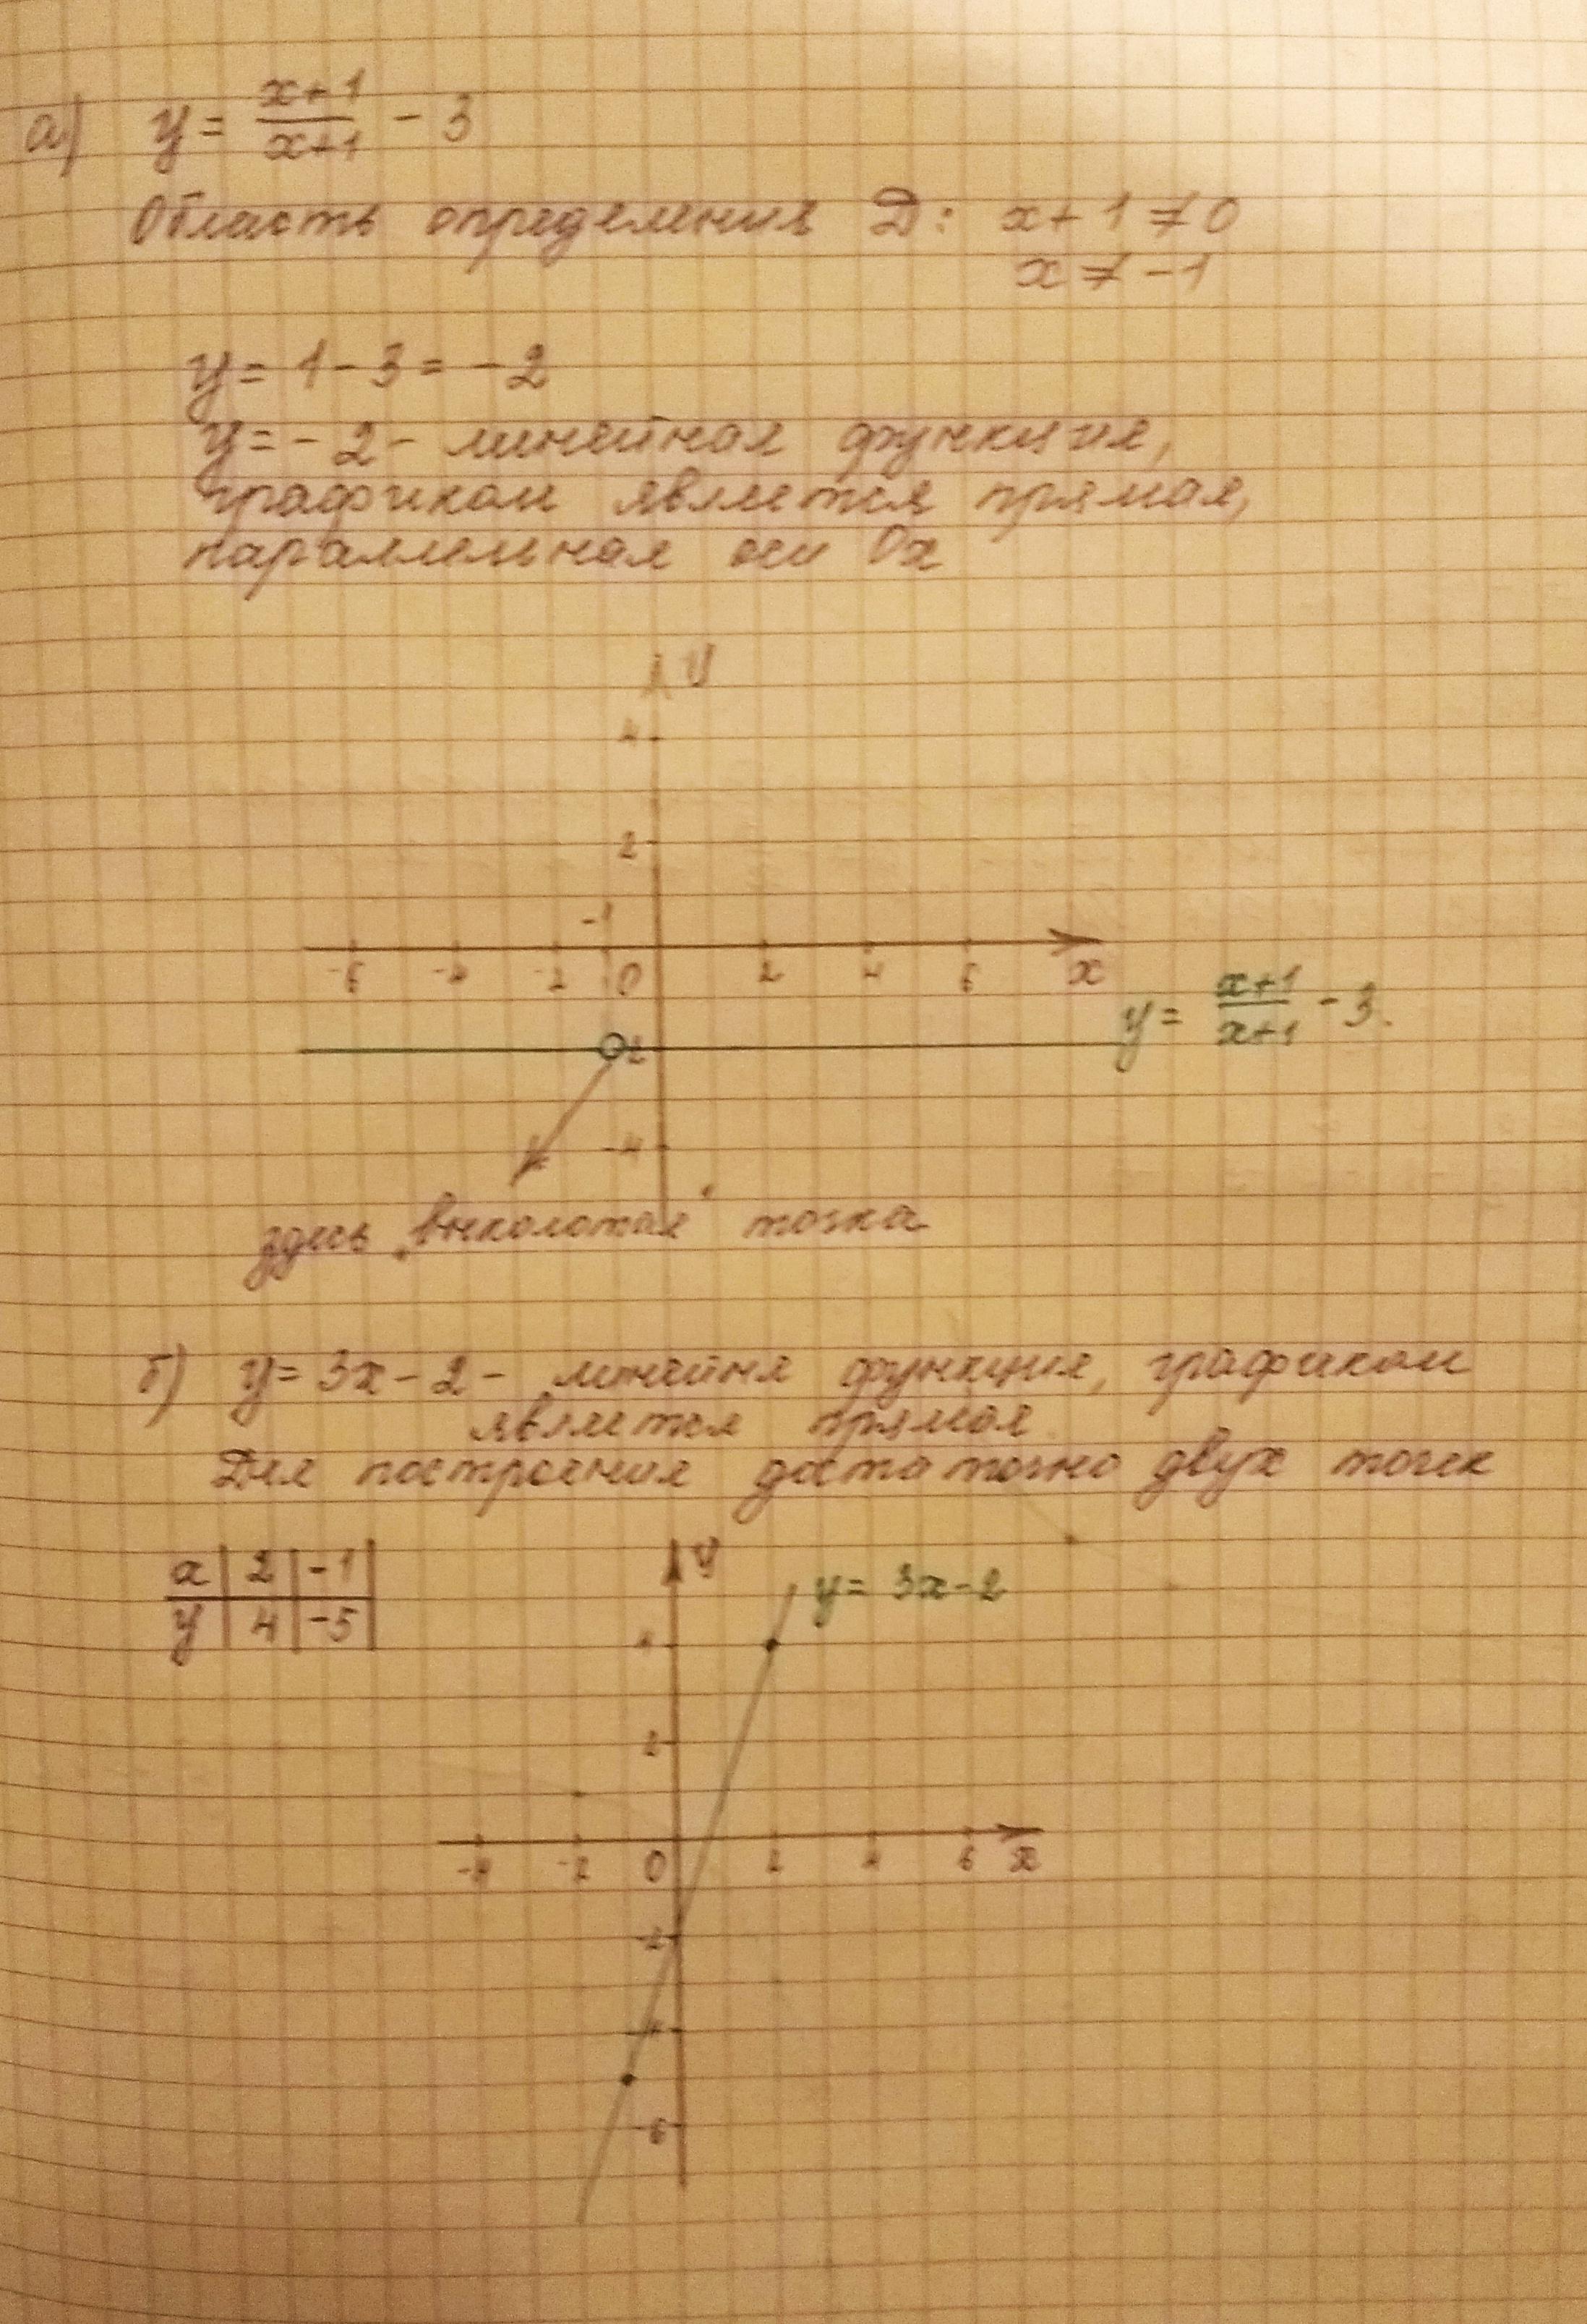 а) y = x+1/x+1 - 3
Область определения D: x+1≠0
x≠-1
y = 1-3 = -2
y = -2 - линейная функция,
графиком является прямая,
параллельная оси Ox
y
4
2
-1
-6 -4 -2 0 2 4 6 x
y = x+1/x+1 - 3.
-2
-4
здесь „выколотая" точка
б) y = 3x-2 - линейня функция, графиком
является прямая.
Для построения достаточно двух точек
x | 2 | -1 |
y | 4 | -5 |
y
y = 3x-2
4
2
-4 -2 0 2 4 6 x
-2
-4
-6